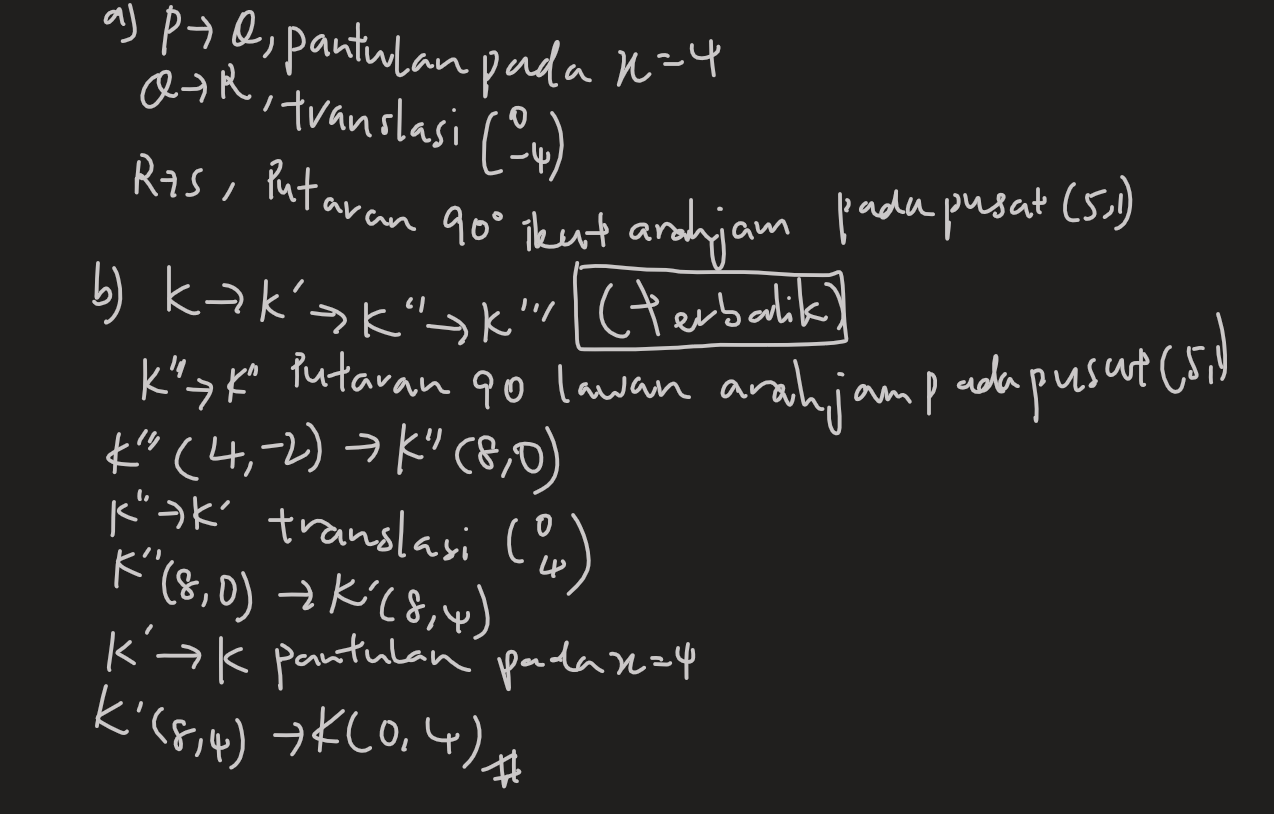 a) P→Q, pantulan pada x=4
Q→R, translasi (0 -4)
R→S, Putaran 90° ikut arah jam pada pusat (5,1)
b) K→K'→K''→K''' (terbalik)
K'''→K'' Putaran 90 lawan arah jam pada pusat (5,1)
K'''(4,-2) → K''(8,0)
K''→K' translasi (0 4)
K''(8,0) → K'(8,4)
K'→K pantulan pada x=4
K'(8,4) → K(0,4)#